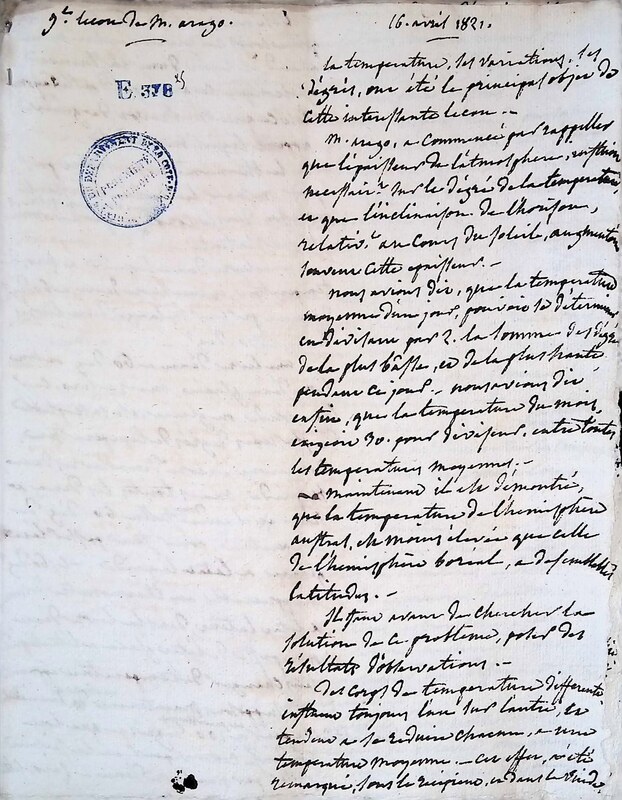 9e. leçon de M. arago.
16. avril 1821.
E 378 25
la temperature, ses variations, ses
dégrés, ont été le principal objet de
cette interessante leçon. —
M. arago, a commencé par rappeller
que l'épaisseur de l'atmosphere, influoit
necessairt. sur le dégré de la temperature,
et que l'inclinaison de l'horison,
relativt. au cours du soleil, augmentoit
souvent cette epaisseur. —
nous avions dit, que la temperature
moyenne d'un jour, pouvoit se determiner
en divisant par 2. la somme des dégrés
de la plus bâsse, et de la plus haute
pendant ce jour. — nous avions dit
enfin, que la temperature du mois,
exigeoit 30. pour diviseur, entre toutes
les temperatures moyennes. —
maintenant il est démontré,
que la temperature de l'hemisphère
austral, est moins élevée que celle
de l'hemisphère boréal, a de semblables
latitudes. —
Il faut avant de chercher la
solution de ce problème, poser des
résultats d'observations. —
Des corps de temperature differente
influent toujours l'un sur l'autre, et
tendent a se reduire chacun, a une
temperature moyenne. — cet effet, a été
remarqué, sous le recipient, et dans le vuide